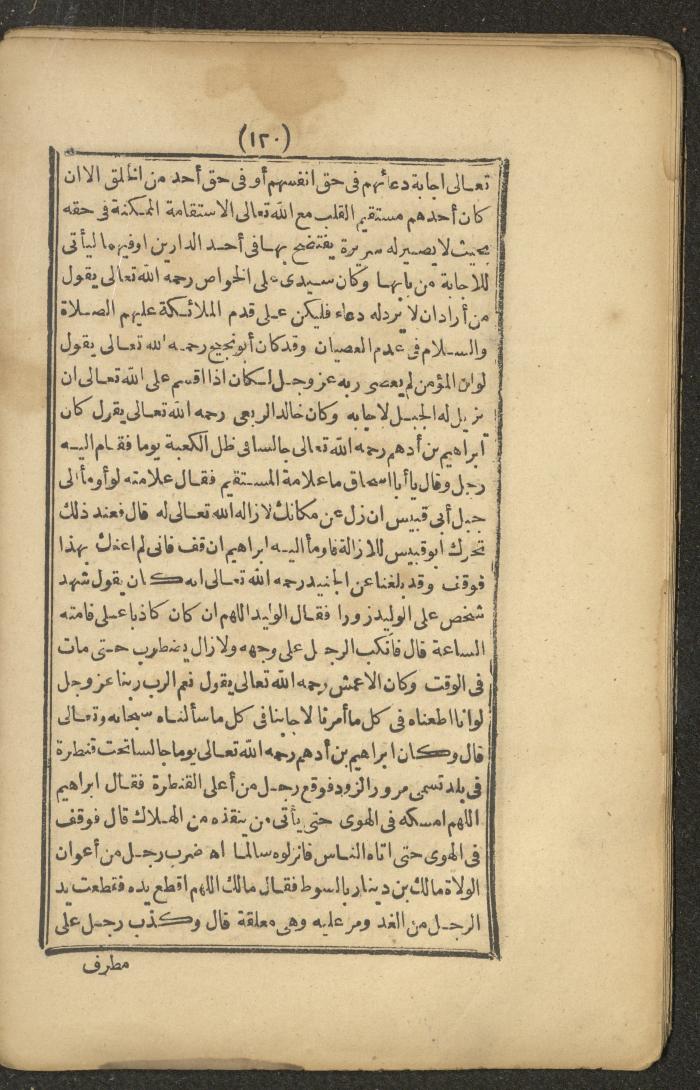 (١٢٠)
تعالى اجابة دعائهم فى حق انفسهم أو فى حق أحد من الخلق الا ان
كان أحدهم مستقيم القلب مع الله تعالى الاستقامة الممكنة فى حقه
بحيث لا يصير له سريرة يفتضح بها فى أحد الدارين او فيهما ليأتى
للاجابة من بابها وكان سيدى على الخواص رحمه الله تعالى يقول
من أراد ان لا يرد له دعاء فليكن على قدم الملائكة عليهم الصلاة
والسلام فى عدم العصيان وقد كان أبو نجيح رحمه الله تعالى يقول
لو ان المؤمن لم يعصى ربه عز وجل لكان اذا اقسم على الله تعالى ان
يزيل له الجبل لاجابه وكان خالد الربعى رحمه الله تعالى يقول كان
ابراهيم بن أدهم رحمه الله تعالى جالسا فى ظل الكعبة يوما فقام اليه
رجل وقال يا أبا اسحاق ما علامة المستقيم فقال علامته لو أومأ الى
جبل أبى قبيس ان زل عن مكانك لازاله الله تعالى له قال فعند ذلك
تحرك ابو قبيس للازالة فاومأ اليه ابراهيم ان قف فانى لم اعنك بهذا
فوقف وقد بلغنا عن الجنيد رحمه الله تعالى انه كان يقول شهد
شخص على الوليد زورا فقال الوليد اللهم ان كان كاذبا على فامته
الساعة قال فانكب الرجل على وجهه ولا زال يضطرب حتى مات
فى الوقت وكان الاعمش رحمه الله تعالى يقول نعم الرب ربنا عز وجل
لو انا اطعناه فى كل ما أمرنا لاجابنا فى كل ما سألناه سبحانه وتعالى
قال وكان ابراهيم بن أدهم رحمه الله تعالى يوما جالسا تحت قنطرة
فى بلد تسمى مرو الرود فوقع رجل من أعلى القنطرة فقال ابراهيم
اللهم امسكه فى الهوى حتى يأتى من ينقذه من الهلاك قال فوقف
فى الهوى حتى اتاه الناس فانزلوه سالما اه ضرب رجل من أعوان
الولاة مالك بن دينار بالسوط فقال مالك اللهم اقطع يده فقطعت يد
الرجل من الغد ومر عليه وهى معلقة قال وكذب رجل على
مطرف